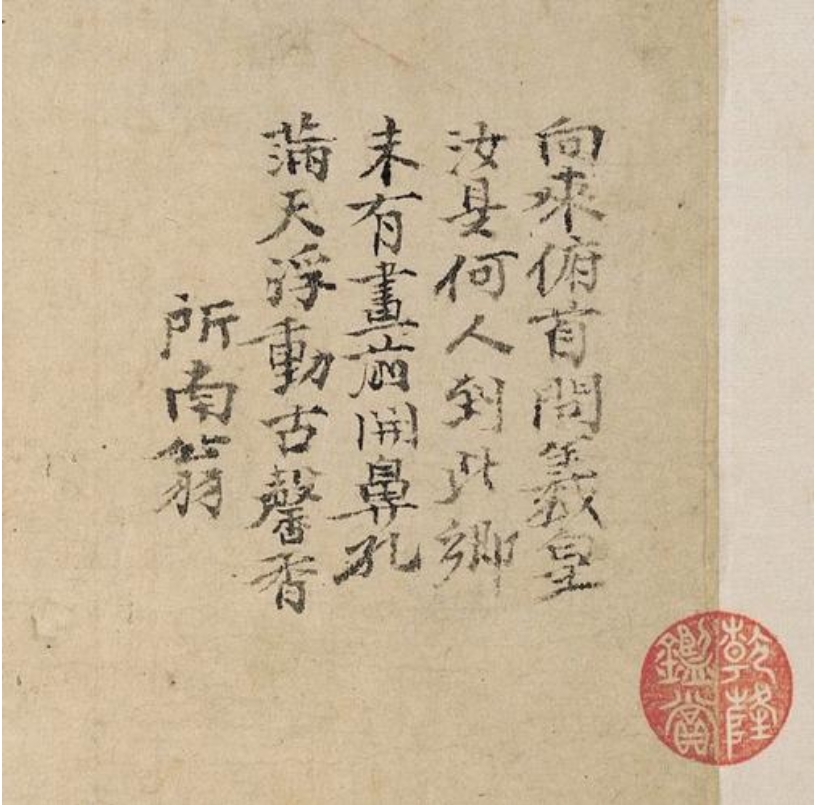 向來俯首問羲皇
汝是何人到此鄉
未有畫前開鼻孔
滿天浮動古馨香
所南翁
乾隆
鑑賞